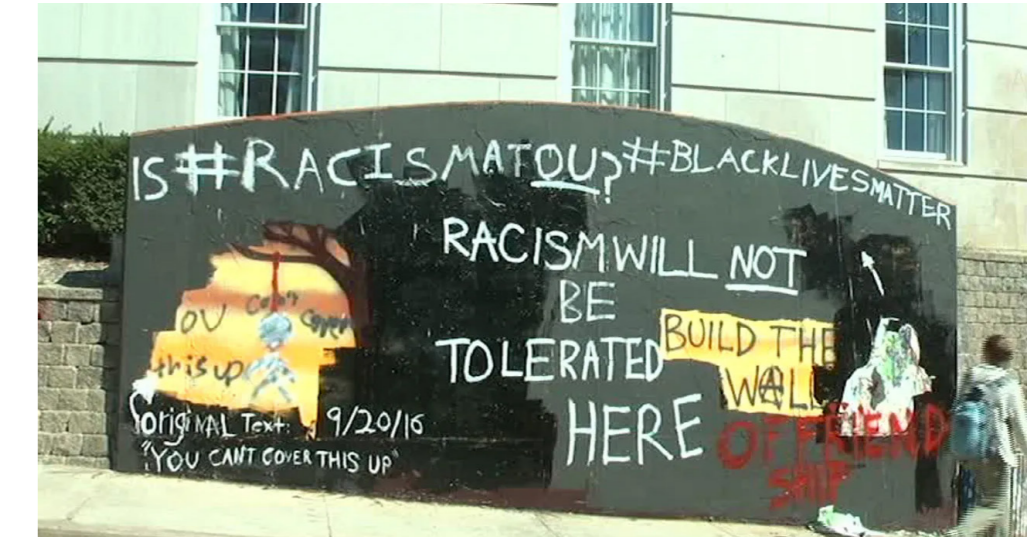 IS #RACISMATOU? #BLACKLIVESMATTER
RACISM WILL NOT
BE
TOLERATED
HERE
OU Can't Cover
this up
original Text: 9/20/16
"YOU CANT COVER THIS UP"
BUILD THE
WALL
OF FRIEND
SHIP